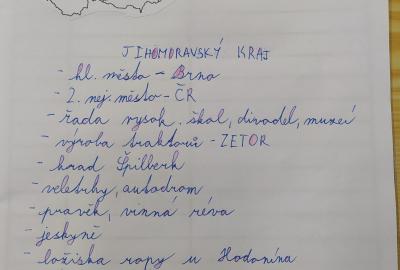 JIHOMORAVSKÝ KRAJ
- hl. město - Brno
- 2. nej. město - ČR
- řada vysok. škol, divadel, muzeí
- výroba traktorů - ZETOR
- hrad Špilberk
- veletrhy, autodrom
- pravěk, vinná réva
- jeskyně
- ložiska ropy u Hodonína